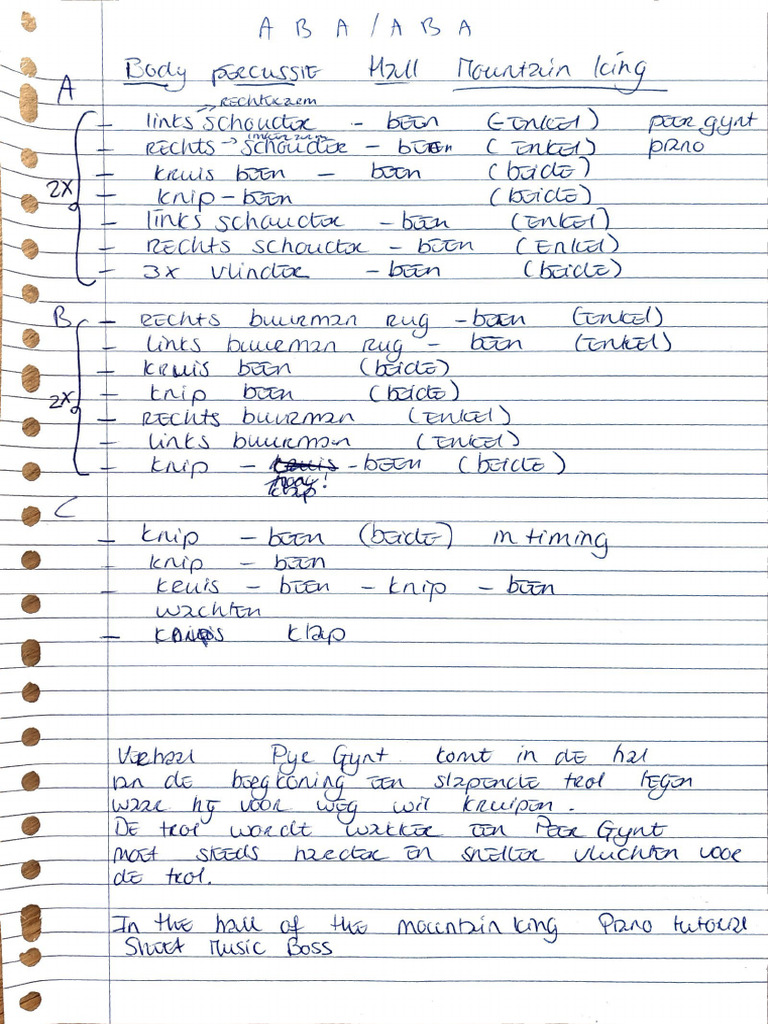 A B A / A B A
Body percussie Hall Mountain King
A
→ rechterarm
- links schouder - been (enkel) peer gynt
- rechts → schouder - been (enkel) piano
2x
- kruis been - been (beide)
- knip - been (beide)
- links schouder - been (enkel)
- rechts schouder - been (enkel)
- 3x vlinder - been (beide)
B
- rechts buurman rug - been (enkel)
- links buurman rug - been (enkel)
- kruis been (beide)
2x
- knip been (beide)
- rechts buurman (enkel)
- links buurman (enkel)
- knip - kruis - been (beide)
klap!
C
- knip - been (beide) in timing
- knip - been
- kruis - been - knip - been
wachten
- klap
Verhaal Pye Gynt komt in de hal
van de bergkoning een slapende trol tegen
waar hij voor weg wil kruipen.
De trol wordt wakker en Peer Gynt
moet steeds harder en sneller vluchten voor
de trol.
In the hall of the mountain king Piano tutorial
Sheet Music Boss